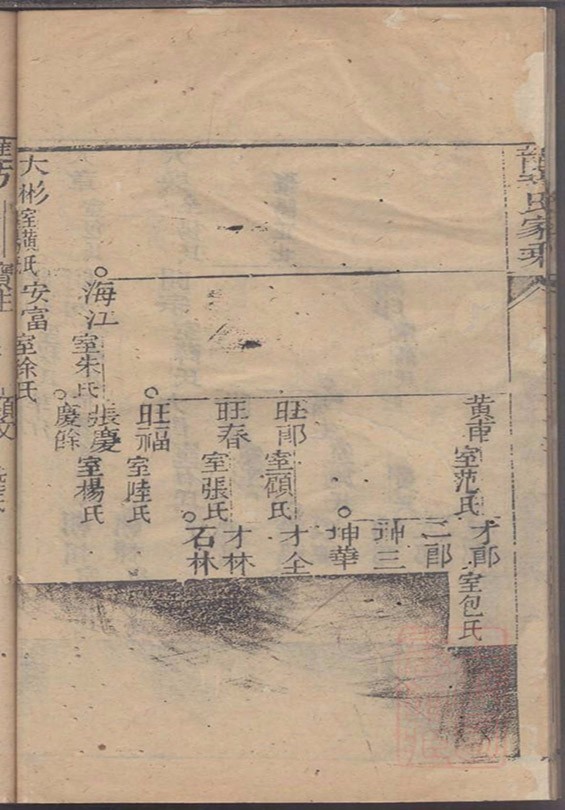 黃甫室范氏
才郎室包氏
二郎
坤三
坤華
旺郎室顧氏
才全
旺春室張氏
才林
石林
旺福室陸氏
海江室朱氏
張慶室楊氏
慶餘
大彬室黃氏
安富室徐氏